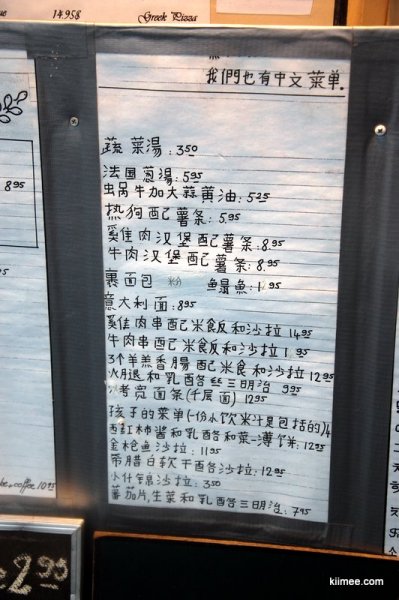 14.95$ Greek Pizza
我們也有中文菜单.
蔬菜湯:3.50
法国葱湯:5.95
虫蜗牛加大蒜黄油:5.25
热狗配薯条:5.95
雞肉汉堡配薯条:8.95
牛肉汉堡配薯条:8.95
裹面包 粉 鳎魚:1.95
意大利面:8.95
雞肉串配米飯和沙拉 14.95
牛肉串配米飯和沙拉 1.95
3个羊羔香腸配米和沙拉 12.95
火腿和乳酪三明治 9.95
烤宽面条(千层面) 12.95
孩子的菜单(一份小饮料汁是包括的)4
西紅柿酱和乳酪和菜一薄饼:12.95
金枪鱼沙拉:11.95
希腊白软干酪沙拉:12.95
小什锦沙拉:3.50
蕃茄片,生菜和乳酪三明治:7.95
8.95
coffee 10.95
2.95
kiimee.com